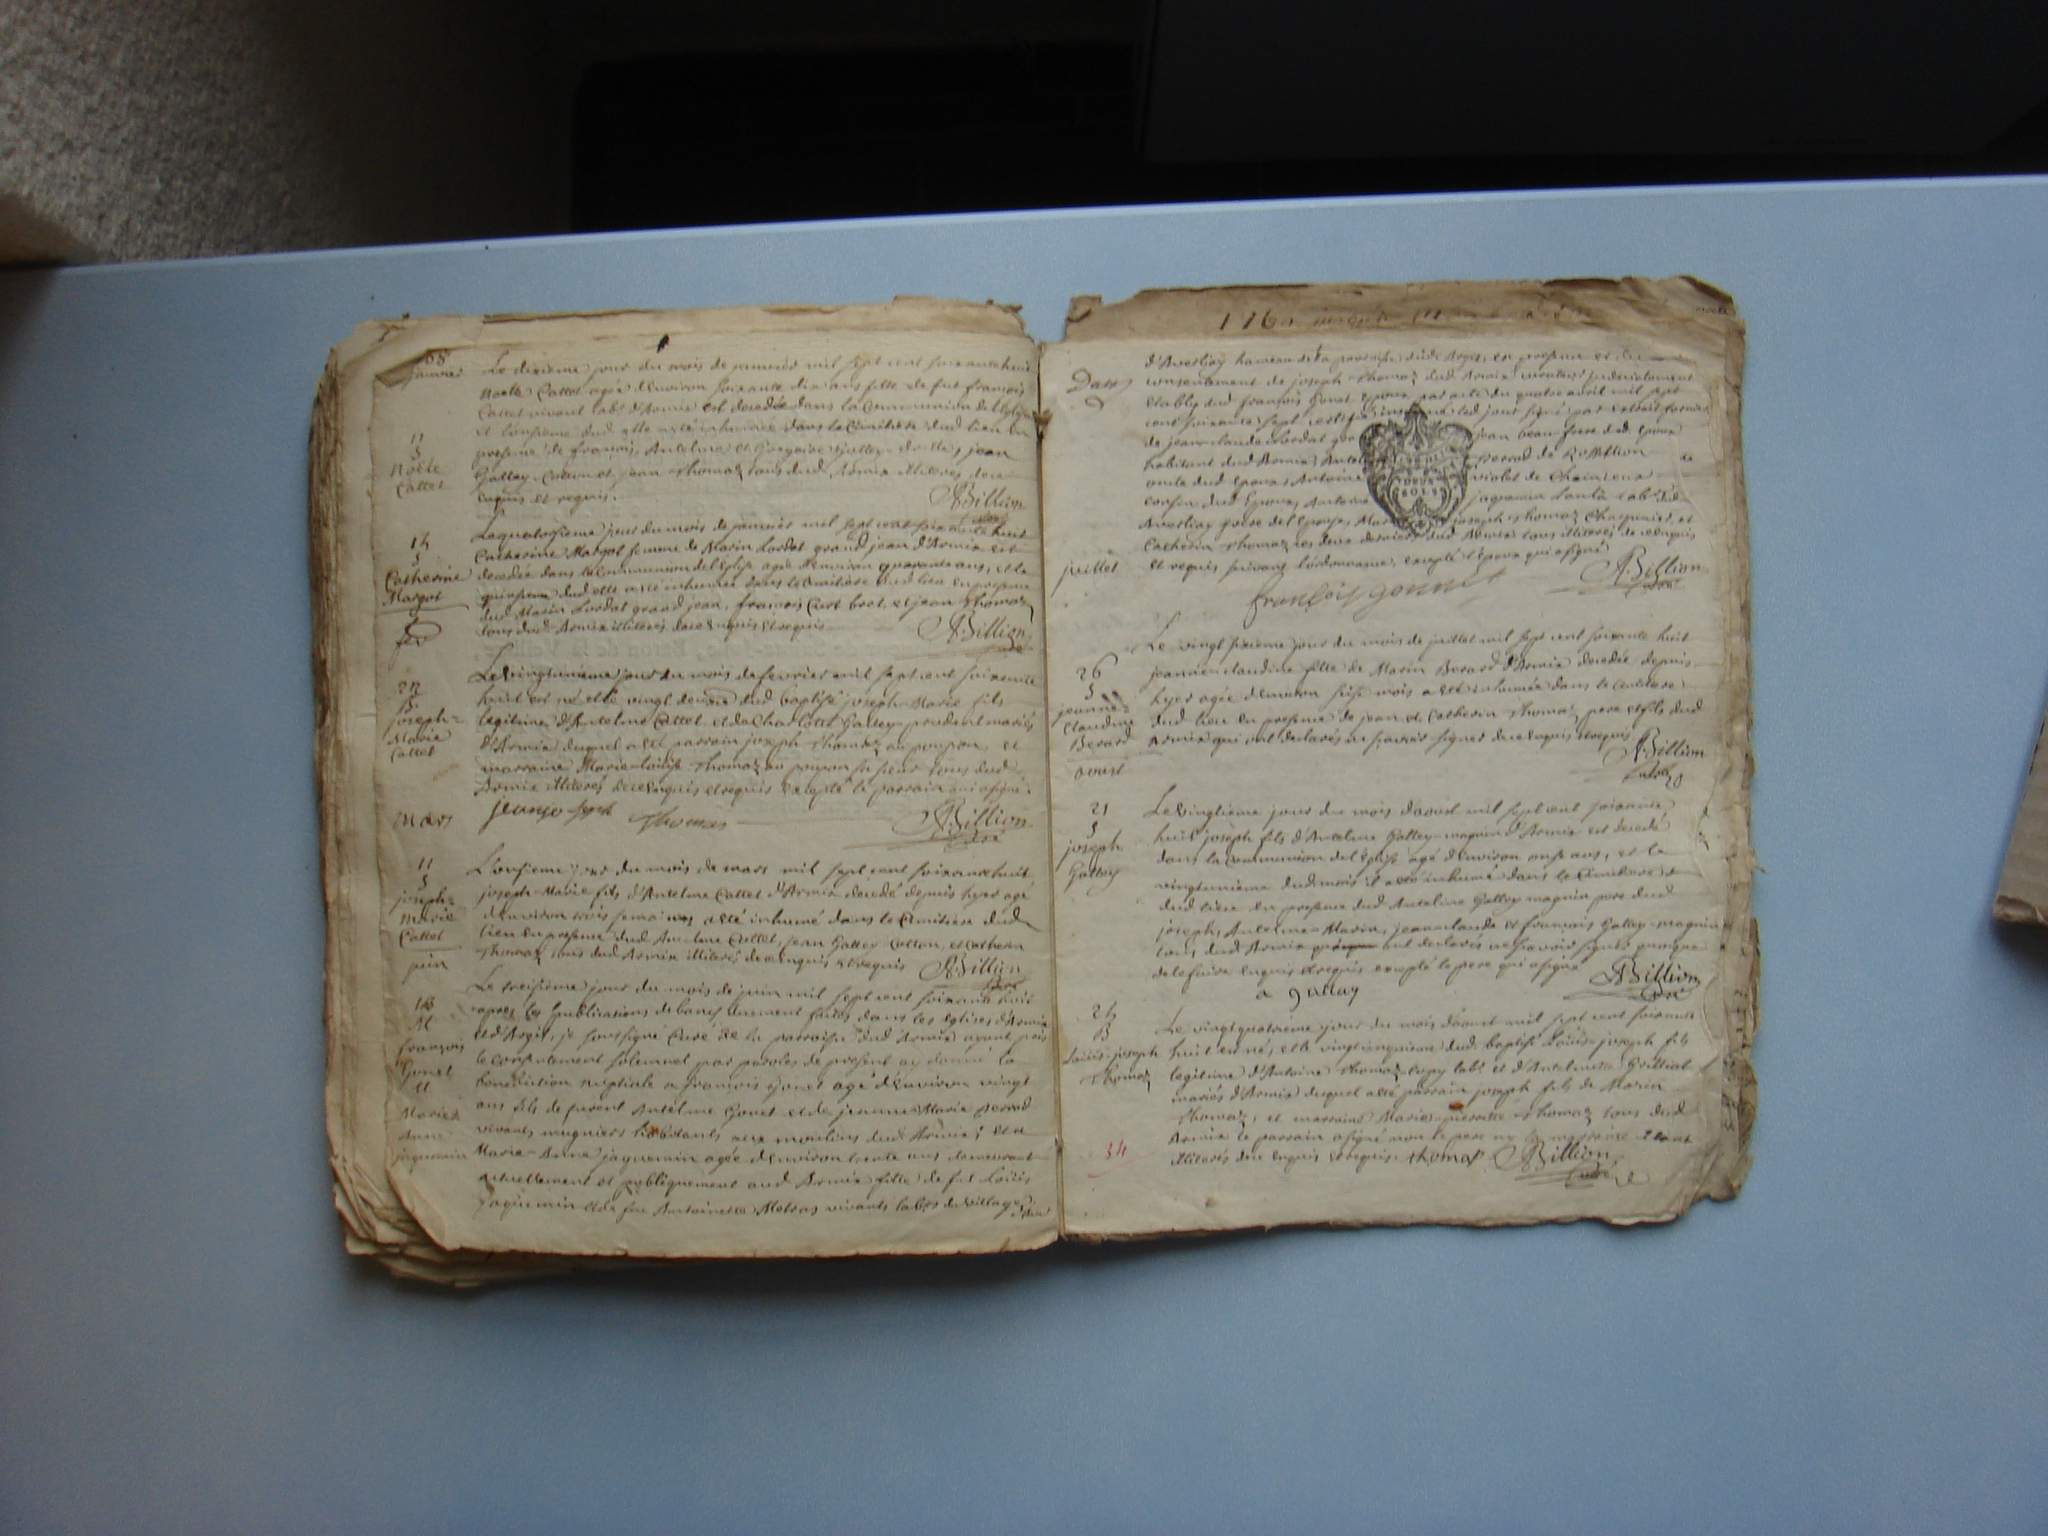 68
janvier
Le dixieme jour du mois de janvier mil sept cent soixante huit
Noele Cattet agée d'environ soixante dix ans fille de fut françois
Cattet vivant lab. d'Armix est decedée dans la Communion de l'eglise
et l'onsieme dud elle a eté inhumée dans le Cimitiere dud lieu en
presence de françois, Antelme et Gregoire Gallay, jean
Gallay Cotton et jean Thomaz tous dud Armix illiteres de ce
enquis et requis.
ABillion
curé
11
S
Noele
Cattet
Le quatorsieme jour du mois de janvier mil sept cent soixante huit
Catherine Margot femme de Marin Lordat grand jean d'Armix est
decedée dans la Communion de l'eglise agée d'environ quarante ans, et le
quinsieme dud elle a eté inhumée dans le Cimitiere dud lieu en presence
dud Marin Lordat grand jean, françois brot, et jean Thomaz
tous dud Armix illiteres de ce enquis et requis
ABillion
curé
15
S
Catherine
Margot
Le vingtunieme jour du mois de fevrier mil sept cent soixante
huit est né et le vingt deuxie dud baptisé joseph-Marie fils
legitime d'Antelme Cattet et de Charlotte Gallay mariés
d'Armix duquel a eté parrain joseph Thomaz au poupon, et
marraine Marie-Louise Thomaz au poupon sa soeur tous dud
Armix illiteres de ce enquis et requis excepté le parrain qui a signé.
22
B
joseph-
Marie
Cattet
Thomas
ABillion
curé
mars
L'onsieme jour du mois de mars mil sept cent soixante huit
joseph-Marie fils d'Antelme Cattet d'Armix decedé depuis hyer agé
d'environ trois semaines a eté inhumé dans le Cimitiere dud
lieu en presence dud Antelme Cattet, jean Gallay Cotton, et Catherin
Thomaz tous dud Armix illiteres de ce enquis et requis
ABillion
curé
11
S
joseph-
Marie
Cattet
juin
Le treisieme jour du mois de juin mil sept cent soixante huit
apres les publications de bancs duement faites dans les eglises d'Armix
et d'Argis, je soussigné Curé de la parroisse dud Armix ayant pris
le consentement solemnel par paroles de present ay donné la
benediction nuptiale a françois Gonet agé d'environ vingt
ans fils de Antelme Gonet et de jeanne-Marie Perrad
vivants mugniers habitants aux moulins dud Armix; et a
Marie-Anne jaquemin agée d'environ trente ans demeurant
actuellement et publiquement aud Armix fille de fut Loüis
jaquemin et de fue Antoinette Metras vivants lab. du village
13
M
françois
Gonet
et
Marie
Anne
jaquemin
176
d'Averliaz hameau de la parroisse dud Argis, en presence et du
consentement de joseph Thomaz dud Armix curateur judiciairement
etably dud françois Gonet epoux par acte du quatre avril mil sept
cent soixante sept led jour signé par extrait
de jean-claude Lordat jean beau-frere dud epoux
habitant dud Armix, Antelme Perrad de Rossillion
oncle dud epoux, Antoine violet de
cousin dud Epoux, Antoine jaquemin lab.
Averliaz frere de l'epouse, joseph Thomaz Charpentier, et
Catherin Thomaz ces deux derniers dud Armix tous illiteres de ce enquis
et requis suivant l'ordonnance, excepté l'epoux qui a signé
DEUX
SOLS
ABillion
curé
françois gonnet
juillet
Le vingt sixieme jour du mois de juillet mil sept cent soixante huit
jeanne-claudine fille de Marin Berard d'Armix decedée depuis
hyer agée d'environ seise mois a eté inhumée dans le Cimitiere
dud lieu en presence de jean et Catherin Thomaz pere et fils dud
Armix qui ont declarés ne sçavoir signer de ce enquis et requis
ABillion
curé
26
S
jeanne-
Claudine
Berard
aoust
Le vingtieme jour du mois d'aoust mil sept cent soixante
huit joseph fils d'Antelme Gallay-magnin d'Armix est decedé
dans la communion de l'eglise agé d'environ onse ans, et le
vingtunieme dud mois il a eté inhumé dans le Cimitiere
dud lieu en presence dud Antelme Gallay magnin pere dud
joseph, Antelme-Marin, jean-claude et françois Gallay-magnin
tous dud Armix ont declarés ne sçavoir signer
de le faire enquis et requis excepté le pere qui a signé
ABillion
curé
a gallay
21
S
joseph
Gallay
Le vingtquatrieme jour du mois d'aoust mil sept cent soixante
huit est né, et le vingtcinquieme dud baptisé Loüis-joseph fils
legitime d'Antoine Thomaz lab. et d'Antelmette Grilliat
mariés d'Armix duquel a eté parrain joseph fils de Marin
Thomaz, et marraine Marie-pierrette Thomaz tous dud
Armix le parrain a signé non le pere ny la marraine etant
illiteres de ce enquis et requis. thomas
ABillion
curé
25
B
Loüis-joseph
Thomaz
34